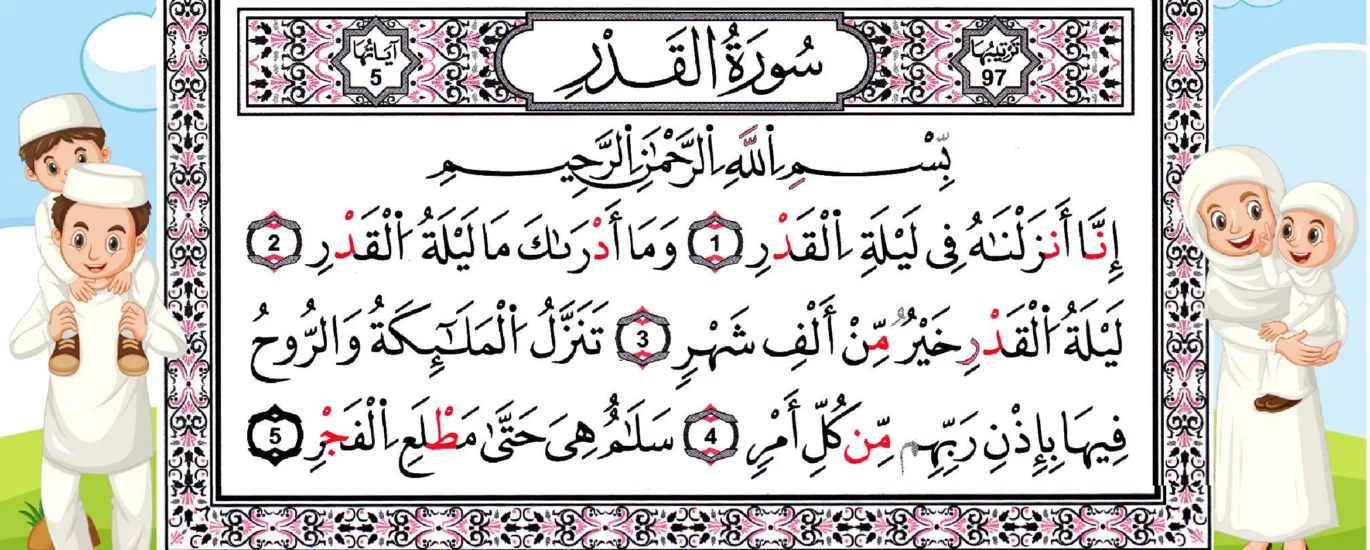 ترتيبها 97 سُورَةُ الْقَدْرِ آيَاتُهَا 5
بِسْمِ اِ۬للَّهِ اِ۬لرَّحْمَٰنِ اِ۬لرَّحِيمِ
إِنَّا أَنزَلْنَٰهُ فِى لَيْلَةِ اِ۬لْقَدْرِ 1 وَمَا أَدْرَىٰكَ مَا لَيْلَةُ اُ۬لْقَدْرِ 2
لَيْلَةُ اُ۬لْقَدْرِ خَيْرٌ مِّنْ أَلْفِ شَهْرٍ 3 تَنَزَّلُ اُ۬لْمَلَٰٓئِكَةُ وَالرُّوحُ
فِيهَا بِإِذْنِ رَبِّهِم مِّن كُلِّ أَمْرٍ 4 سَلَٰمٌ هِىَ حَتَّىٰ مَطْلَعِ اِ۬لْفَجْرِ 5